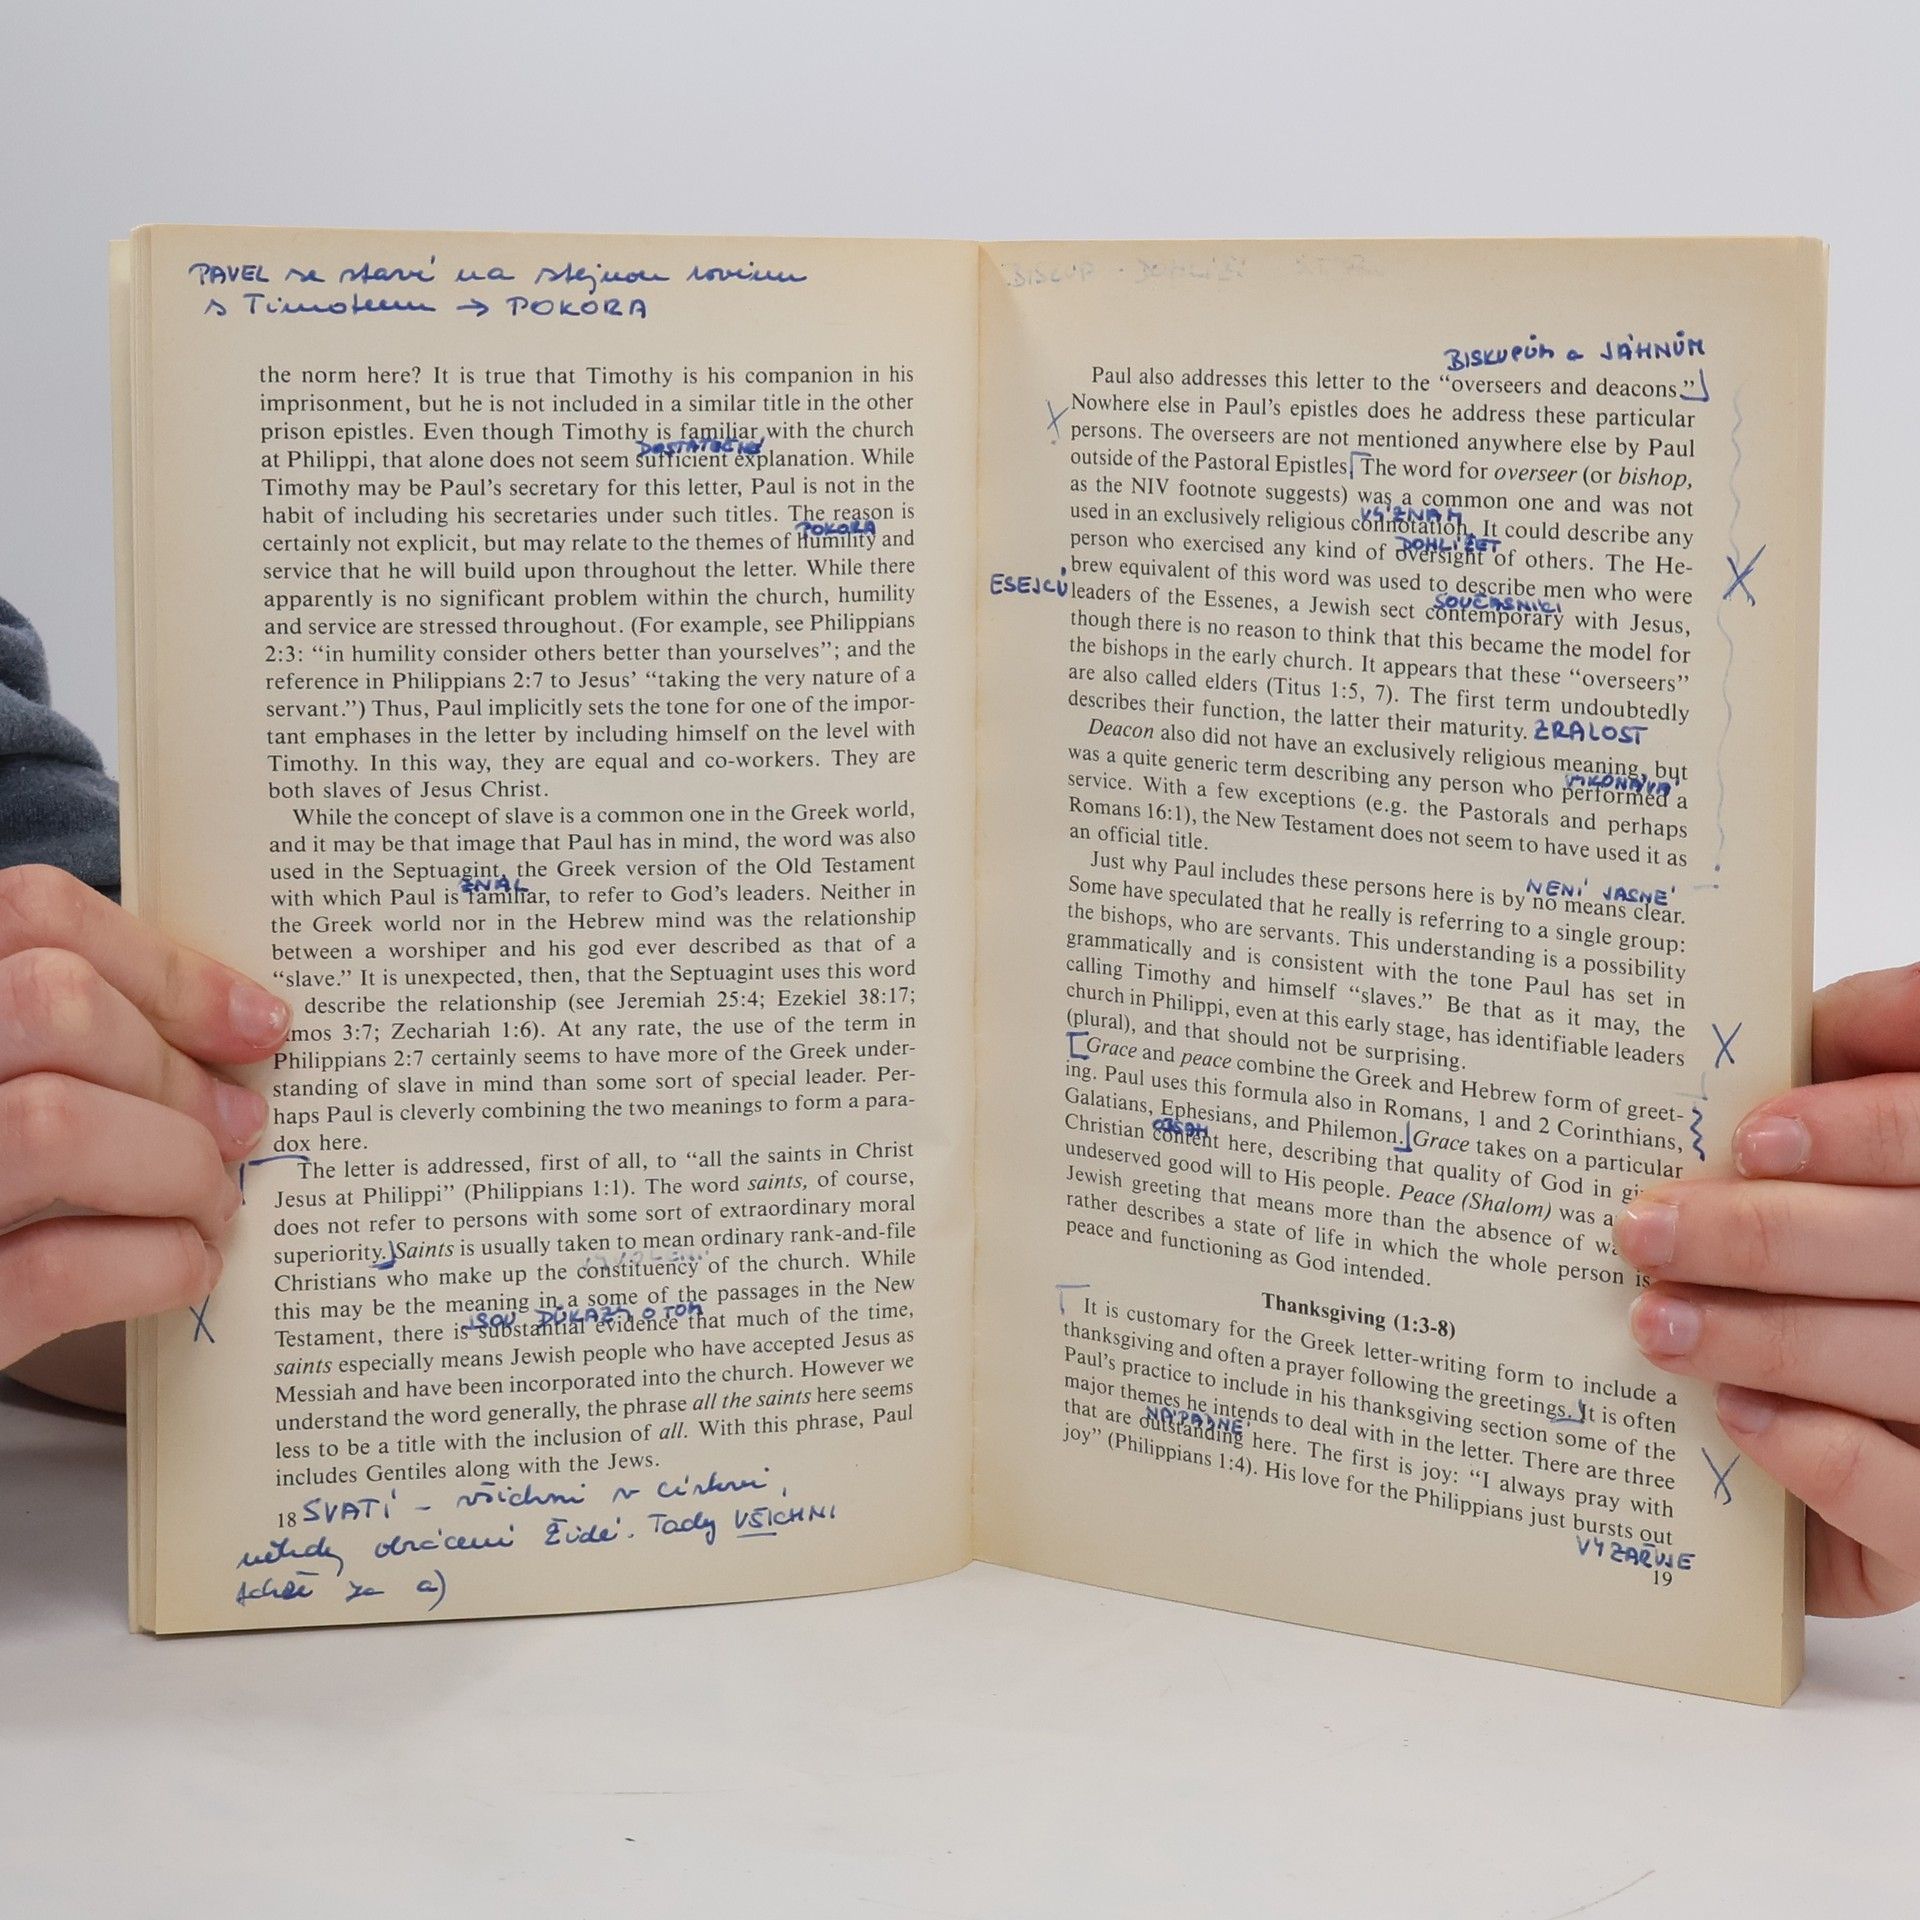 PAVEL se staví na stejnou rovinu
s Timoteem → POKORA
the norm here? It is true that Timothy is his companion in his
imprisonment, but he is not included in a similar title in the other
prison epistles. Even though Timothy is familiar with the church
DOSTATEČNÉ
at Philippi, that alone does not seem sufficient explanation. While
Timothy may be Paul's secretary for this letter, Paul is not in the
habit of including his secretaries under such titles. The reason is
POKORA
certainly not explicit, but may relate to the themes of humility and
service that he will build upon throughout the letter. While there
apparently is no significant problem within the church, humility
and service are stressed throughout. (For example, see Philippians
2:3: “in humility consider others better than yourselves”; and the
reference in Philippians 2:7 to Jesus' “taking the very nature of a
servant.”) Thus, Paul implicitly sets the tone for one of the impor-
tant emphases in the letter by including himself on the level with
Timothy. In this way, they are equal and co-workers. They are
both slaves of Jesus Christ.
While the concept of slave is a common one in the Greek world,
and it may be that image that Paul has in mind, the word was also
used in the Septuagint, the Greek version of the Old Testament
ZNAL
with which Paul is familiar, to refer to God's leaders. Neither in
the Greek world nor in the Hebrew mind was the relationship
between a worshiper and his god ever described as that of a
“slave.” It is unexpected, then, that the Septuagint uses this word
describe the relationship (see Jeremiah 25:4; Ezekiel 38:17;
mos 3:7; Zechariah 1:6). At any rate, the use of the term in
Philippians 2:7 certainly seems to have more of the Greek under-
standing of slave in mind than some sort of special leader. Per-
haps Paul is cleverly combining the two meanings to form a para-
dox here.
The letter is addressed, first of all, to “all the saints in Christ
Jesus at Philippi” (Philippians 1:1). The word saints, of course,
does not refer to persons with some sort of extraordinary moral
superiority. Saints is usually taken to mean ordinary rank-and-file
Christians who make up the constituency of the church. While
this may be the meaning in a some of the passages in the New
JSOU DŮKAZY O TOM
Testament, there is substantial evidence that much of the time,
saints especially means Jewish people who have accepted Jesus as
Messiah and have been incorporated into the church. However we
understand the word generally, the phrase all the saints here seems
less to be a title with the inclusion of all. With this phrase, Paul
includes Gentiles along with the Jews.
18 SVATÍ - všichni v církvi,
někdy obrácení Židé. Tady VŠICHNI
za a)
BISKUP
BISKUPŮM a JÁHNŮM
Paul also addresses this letter to the “overseers and deacons.”
Nowhere else in Paul's epistles does he address these particular
persons. The overseers are not mentioned anywhere else by Paul
outside of the Pastoral Epistles. The word for overseer (or bishop,
as the NIV footnote suggests) was a common one and was not
VÝZNAM
used in an exclusively religious connotation. It could describe any
DOHLÍŽET
person who exercised any kind of oversight of others. The He-
brew equivalent of this word was used to describe men who were
ESEJCŮ
SOUČASNÍCI
leaders of the Essenes, a Jewish sect contemporary with Jesus,
though there is no reason to think that this became the model for
the bishops in the early church. It appears that these “overseers”
are also called elders (Titus 1:5, 7). The first term undoubtedly
describes their function, the latter their maturity. ZRALOST
Deacon also did not have an exclusively religious meaning, but
VYKONÁVÁ
was a quite generic term describing any person who performed a
service. With a few exceptions (e.g. the Pastorals and perhaps
Romans 16:1), the New Testament does not seem to have used it as
an official title.
NENÍ JASNÉ
Just why Paul includes these persons here is by no means clear.
Some have speculated that he really is referring to a single group:
the bishops, who are servants. This understanding is a possibility
grammatically and is consistent with the tone Paul has set in
calling Timothy and himself “slaves.” Be that as it may, the
church in Philippi, even at this early stage, has identifiable leaders
(plural), and that should not be surprising.
Grace and peace combine the Greek and Hebrew form of greet-
ing. Paul uses this formula also in Romans, 1 and 2 Corinthians,
Galatians, Ephesians, and Philemon. Grace takes on a particular
OBSAH
Christian content here, describing that quality of God in gi
undeserved good will to His people. Peace (Shalom) was a
Jewish greeting that means more than the absence of wa
rather describes a state of life in which the whole person is
peace and functioning as God intended.
Thanksgiving (1:3-8)
It is customary for the Greek letter-writing form to include a
thanksgiving and often a prayer following the greetings. It is often
Paul's practice to include in his thanksgiving section some of the
major themes he intends to deal with in the letter. There are three
NÁPADNÉ
that are outstanding here. The first is joy: “I always pray with
joy” (Philippians 1:4). His love for the Philippians just bursts out
VYZAŘUJE
19